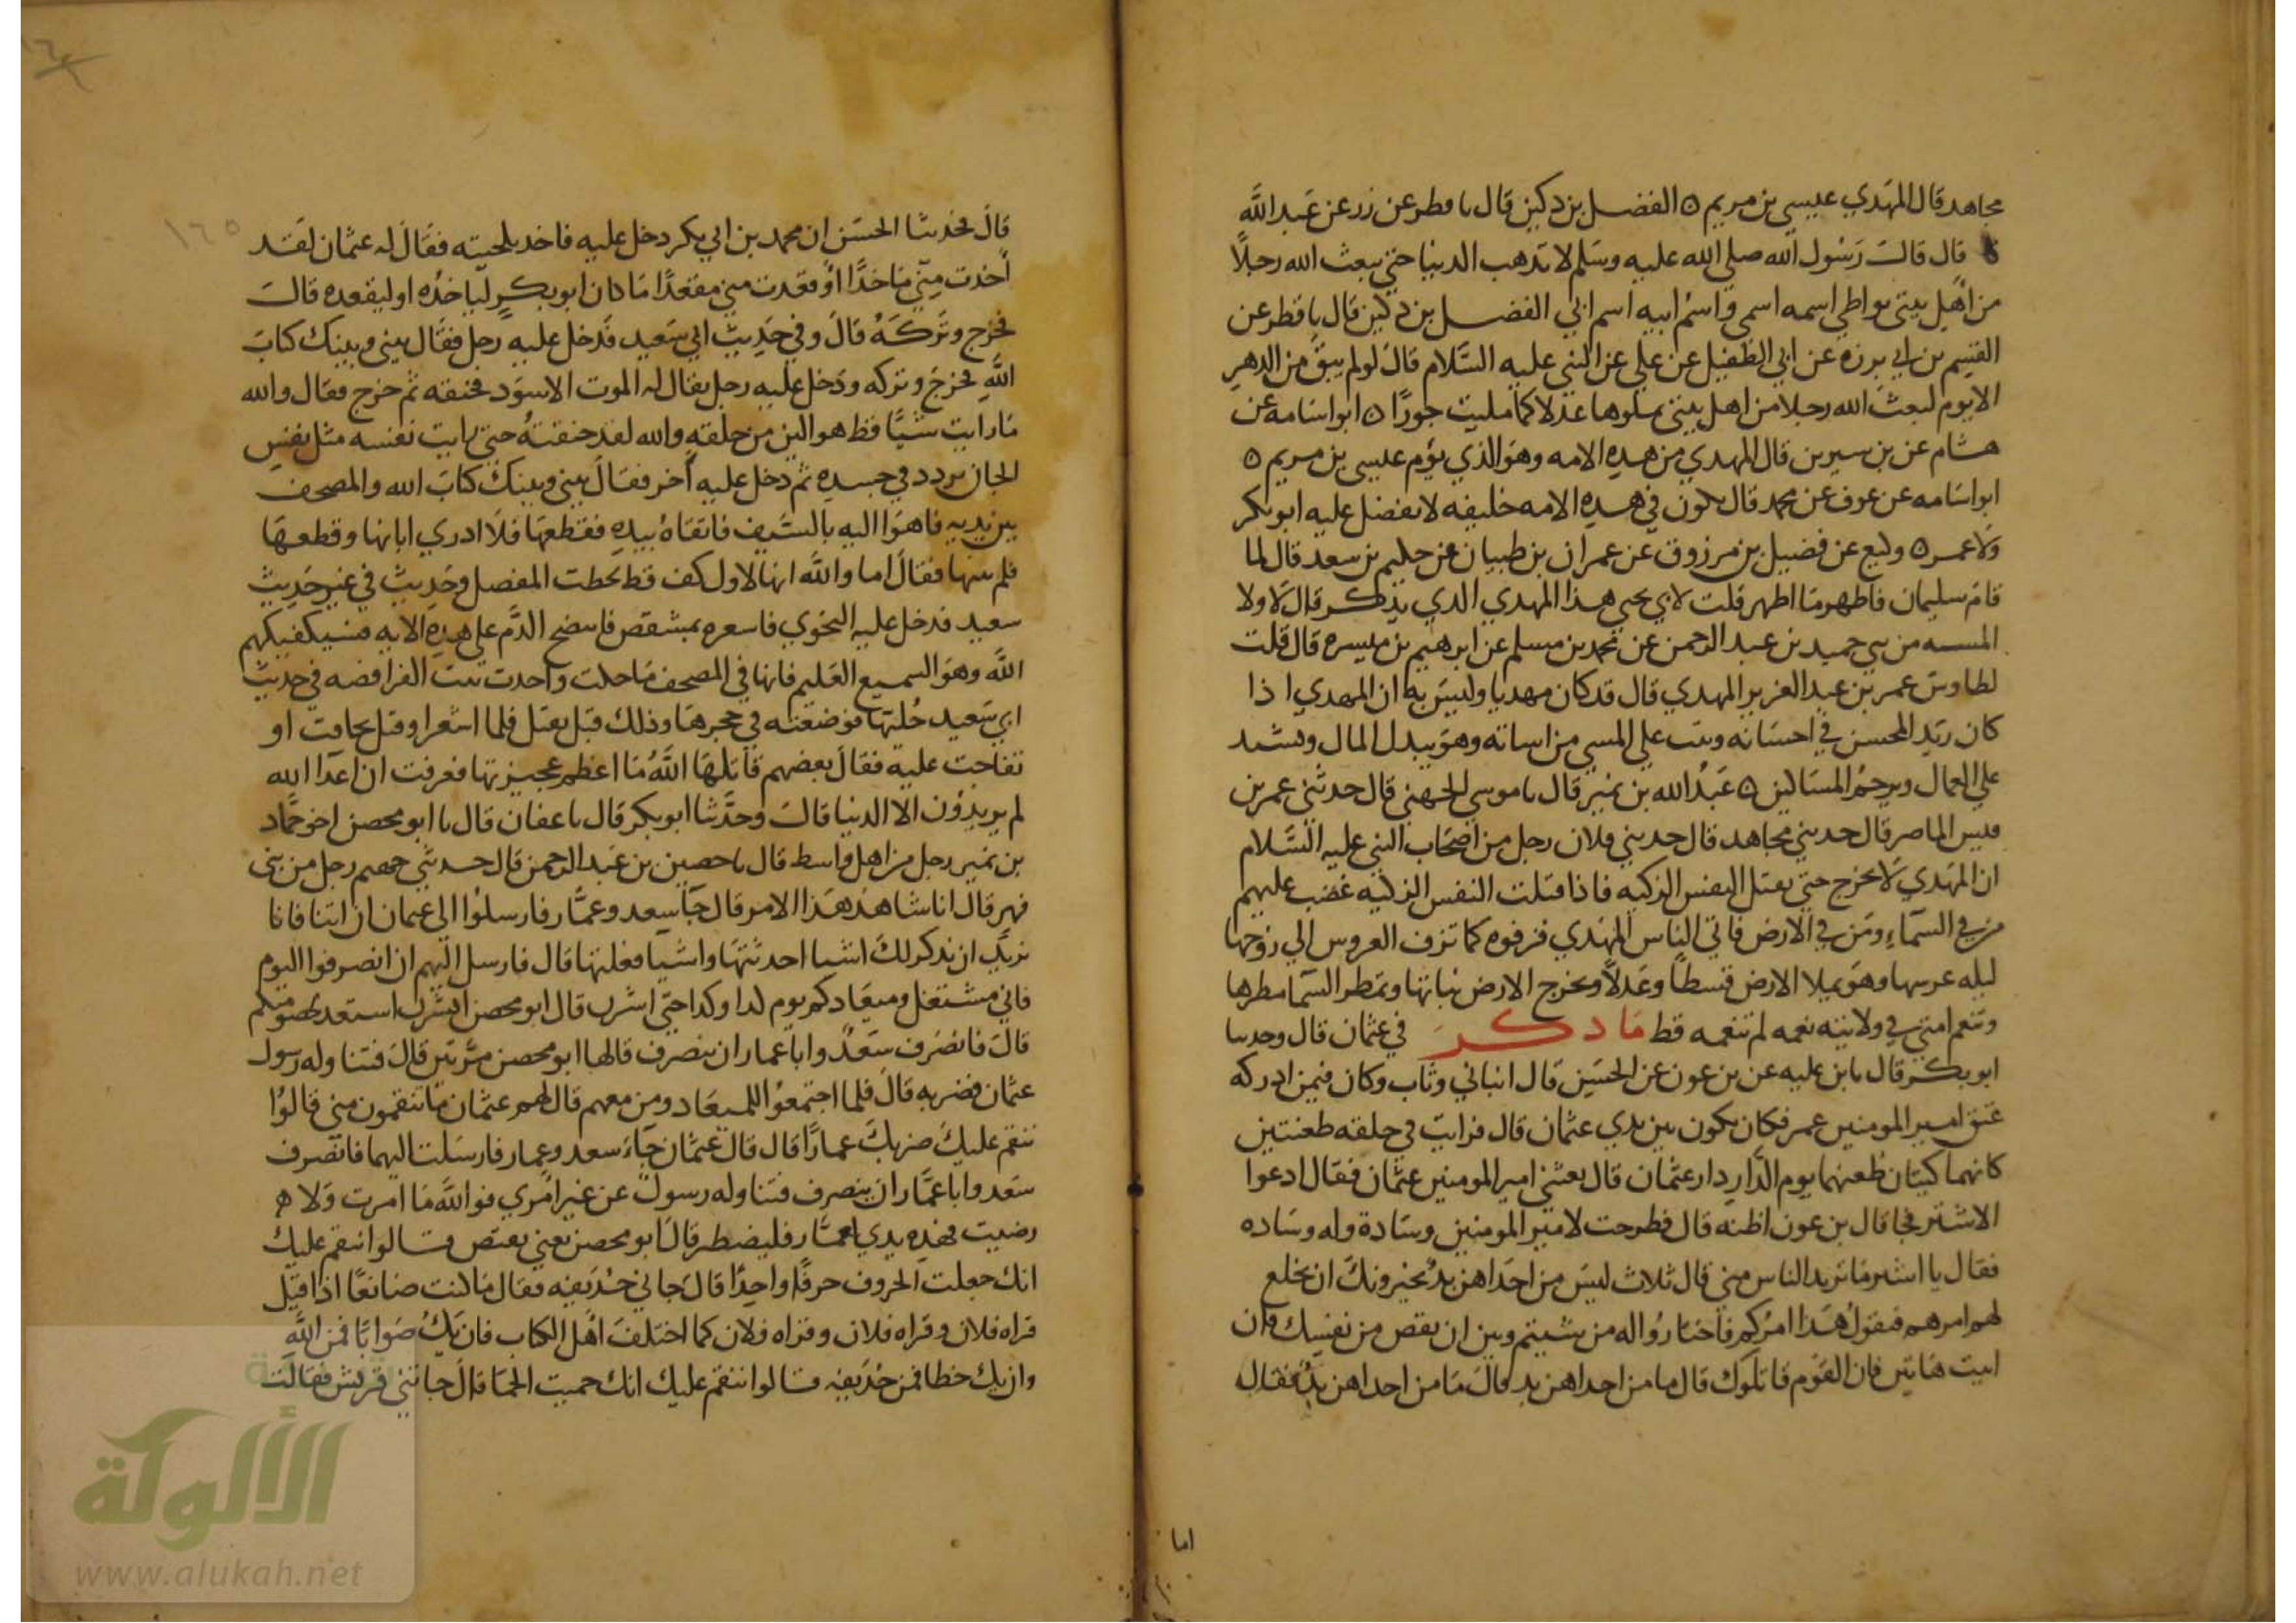 مجاهد قال المهدي عيسي بن مريم ه الفضل بن دكين قال ىا فطر عن زر عن عبد الله
قال قال رسول الله صلي الله عليه وسلم لا تذهب الدنيا حتي يبعث الله رجلا
من اهل بيتي يواطي اسمه اسمي واسم ابيه اسم ابي الفضل بن دكين قال ىا فطر عن
القسم بن ابي بزه عن ابي الطفيل عن علي عن النبي عليه السلام قال لو لم يبق من الدهر
الا يوم لبعث الله رجلا من اهل بيتي يملوها عدلا كما مليت جورا ه ابو اسامه عن
هشام عن بن سيرين قال المهدي من هذه الامه وهو الذي يؤم عيسي بن مريم ه
ابو اسامه عن عوف عن محمد قال يكون في هذه الامه خليفه لا يفضل عليه ابو بكر
ولا عمر ه وكيع عن فضيل بن مرزوق عن عمران بن ظبيان عن حكيم بن سعد قال لما
قام سليمان فاظهر ما اظهر قلت لابي يحيي هذا المهدي الذي يذكر قال لا ولا
المسه من بني حميد بن عبد الرحمن عن محمد بن مسلم عن ابرهيم بن ميسره قال قلت
لطاوس عمر بن عبد العزيز المهدي قال قد كان مهديا وليس به ان المهدي اذا
كان زيد المحسن في احسانه وتيب علي المسي من اساته وهو يبدل المال ويشتد
علي العمال ويرحم المساكين ه عبد الله بن نمير قال ىا موسي الجهني قال حدثني عمر بن
قيس الماصر قال حدثني مجاهد قال حدثني فلان رجل من اصحاب النبي عليه السلام
ان المهدي لا يخرج حتي يقتل النفس الزكيه فاذا قتلت النفس الزكيه غضب عليهم
من في السماء ومن في الارض فاتي الناس المهدي فزفوه كما تزف العروس الي زوجها
ليله عرسها وهو يملا الارض قسطا وعدلا وتخرج الارض نباتها وتمطر السما مطرها
وتنعم امتي في ولايته نعمه لم تنعمه قط ما ذكر في عثمان قال وحدثنا
ابو بكر قال ىا بن عليه عن بن عون عن الحسن قال انباني وثاب وكان فيمن ادركه
عتق امير المومنين عمر فكان يكون بين يدي عثمان قال فرايت في حلقه طعنتين
كانهما كيتان طعنهما يوم الدار دار عثمان قال بعثني امير المومنين عثمان فقال ادعوا
الاشتر فجا قال بن عون اظنه قال فطرحت لامير المومنين وسادة وله وساده
فقال يا اشتر ما تريد الناس مني قال ثلاث ليس من احداهن بد يخيرونك ان تخلع
لهم امرهم فتقول هذا امركم فاختاروا له من شيتم وبين ان تقص من نفسك فان
ابيت هاتين فان القوم قاتلوك قال ما من احداهن بد قال ما من احداهن بد فقال
اما
١٦٥
قال فحدثنا الحسن ان محمد بن ابي بكر دخل عليه فاخذ بلحيته فقال له عثمان لقد
اخذت مني ماخذا او قعدت مني مقعدا ما كان ابو بكر لياخذه او ليقعده قال
فخرج وتركه قال وفي حديث ابي سعيد فدخل عليه رجل فقال بيني وبينك كتاب
الله فخرج وتركه ودخل عليه رجل يقال له الموت الاسود فخنقه ثم خرج فقال والله
ما رايت شيا قط هو الين من حلقه والله لقد خنقته حتي رايت نفسه مثل نفس
الجان يردد في جسده ثم دخل عليه اخر فقال بيني وبينك كتاب الله والمصحف
بين يديه فاهوا اليه بالسيف فاتقاه بيده فقطعها فلا ادري ابانها وقطعها
فلم يبنها فقال اما والله انها لاول كف قط خطت المفصل وحديث في غير حديث
سعيد فدخل عليه التجوي فاشعره بمشقص فانتضح الدم علي هذه الايه فسيكفيكهم
الله وهو السميع العليم فانها في المصحف ما حكت واخذت بنت الفرافصه في حديث
ابي سعيد حليها فوضعته في حجرها وذلك قبل يقتل فلما اشعر او قتل تجافت او
تفاجت عليه فقال بعضهم قاتلها الله ما اعظم عجيزتها فعرفت ان اعدا الله
لم يريدون الا الدنيا قال وحدثنا ابو بكر قال ىا عفان قال ىا ابو محصن اخو حماد
بن نمير رجل من اهل واسط قال ىا حصين بن عبد الرحمن قال حدثني جهيم رجل من بني
فهر قال انا شاهد هذا الامر قال جا سعد وعمار فارسلوا الي عثمان ان ايتنا فانا
نريد ان نذكر لك اشيا احدثتها واشيا فعلتها قال فارسل اليهم ان انصرفوا اليوم
فاني مشتغل وميعادكم يوم كذا وكذا حتي اشزن قال ابو محصن اشزن استعد لخصومتكم
قال فانصرف سعد وابا عمار ان ينصرف قالها ابو محصن مرتين قال فتناوله رسول
عثمان فضربه قال فلما اجتمعوا للميعاد ومن معهم قال لهم عثمان ما تنقمون مني قالوا
ننقم عليك ضربك عمارا قال قال عثمان جاء سعد وعمار فارسلت اليهما فانصرف
سعد وابا عمار ان ينصرف فتناوله رسول عن غير امري فوالله ما امرت ولا
رضيت فهذه يدي لعمار فليضطبر قال ابو محصن يعني يقتص قالوا ننقم عليك
انك جعلت الحروف حرفا واحدا قال جاني حذيفه فقال ما كنت صانعا اذا قيل
قراه فلان وقراه فلان وقراه فلان كما اختلف اهل الكتاب فان يك صوابا فمن الله
وان يك خطا فمن حذيفه قالوا ننقم عليك انك حميت الحما قال جاتني قريش فقالت
الألوكة
www.alukah.net